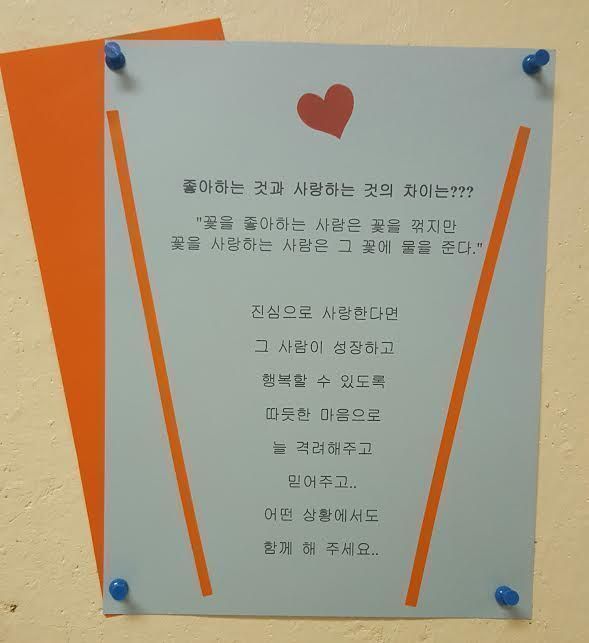 좋아하는 것과 사랑하는 것의 차이는???
"꽃을 좋아하는 사람은 꽃을 꺾지만
꽃을 사랑하는 사람은 그 꽃에 물을 준다."
진심으로 사랑한다면
그 사람이 성장하고
행복할 수 있도록
따듯한 마음으로
늘 격려해주고
믿어주고..
어떤 상황에서도
함께 해 주세요..